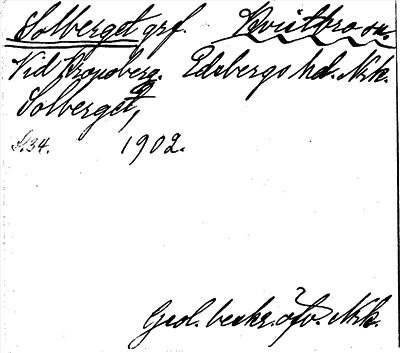 Solberget grf. Kvistbro sn.
Vid Edsbergs hd. Nrk.
Solberget,
S. 34. 1902.
Geol. beskr. öfv. Nrk.